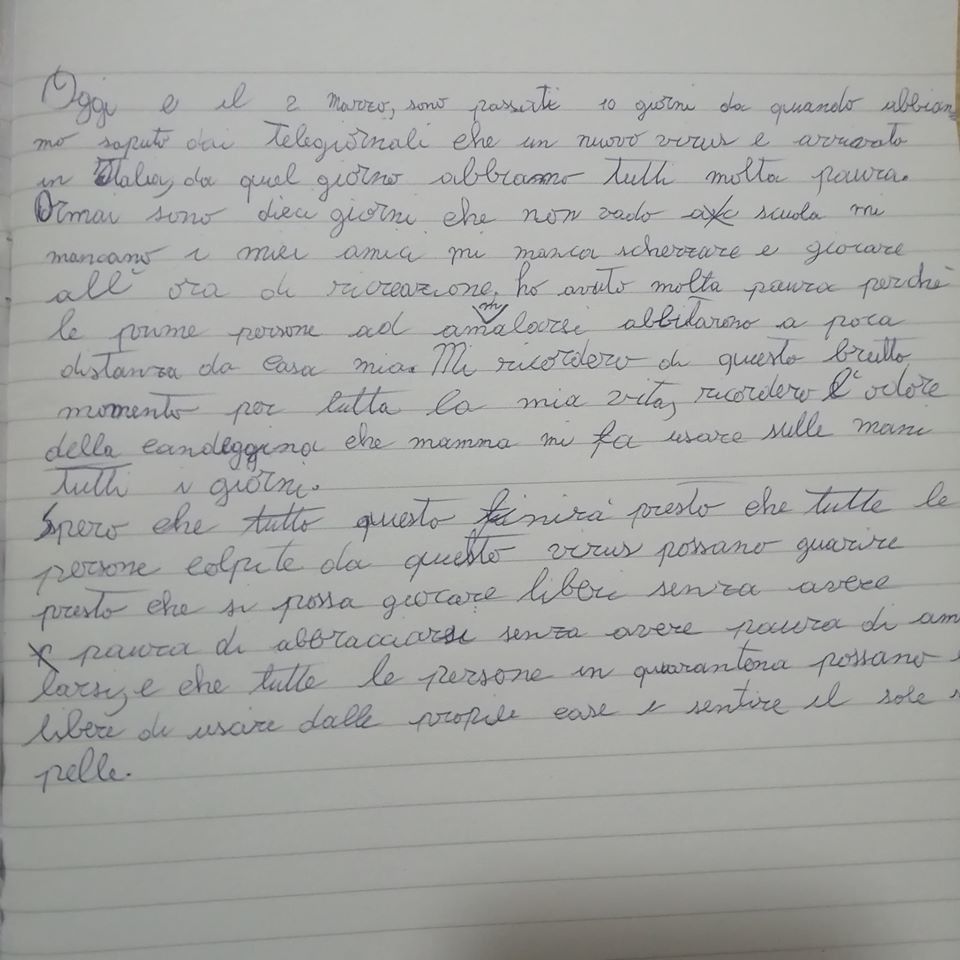 Oggi e il 2 Marzo, sono passati 10 giorni da quando abbiam
mo saputo dai telegiornali che un nuovo virus e arrivato
in Italia, da quel giorno abbiamo tutti molta paura.
Ormai sono dieci giorni che non vado a scuola mi
mancano i miei amici mi manca scherzare e giocare
all' ora di ricreazione, ho avuto molta paura perchè
le prime persone ad ammalarsi abbitarono a poca
distanza da casa mia. Mi ricordero di questo brutto
momento per tutta la mia vita, ricordero l'odore
della candeggina che mamma mi fa usare sulle mani
tutti i giorni.
Spero che tutto questo finirà presto che tutte le
persone colpite da questo virus possano guarire
presto che si possa giocare liberi senza avere
paura di abbracciarsi senza avere paura di am
larsi, e che tutte le persone in quarantena possano
liberi di usare dalle proprie case e sentire il sole
pelle.